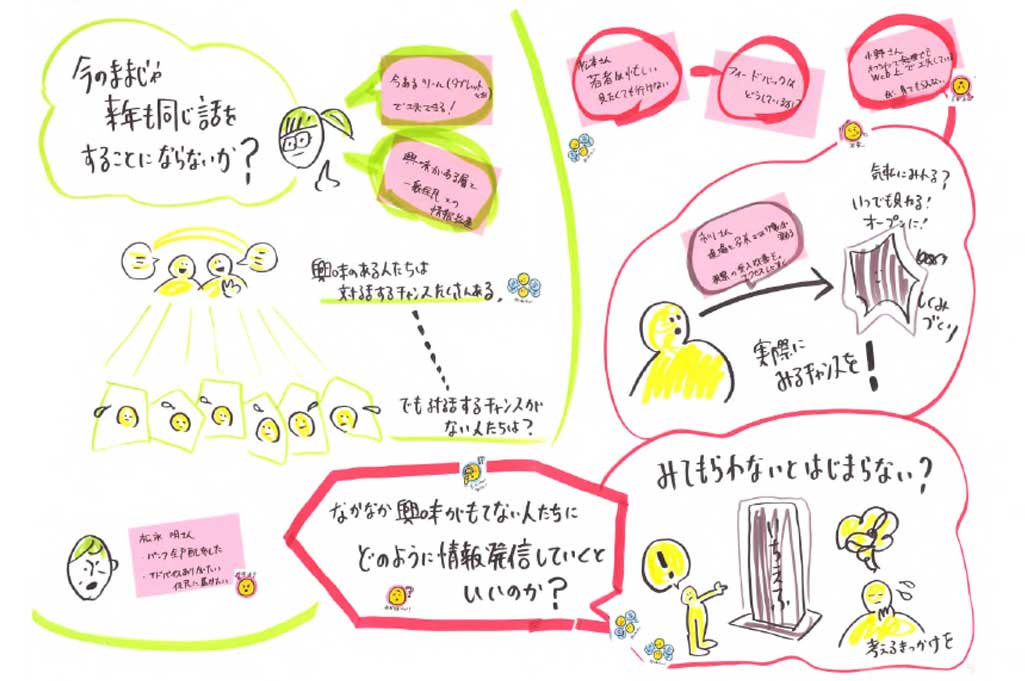 今のままじゃ
来年も同じ話を
することにならないか?
今あるツール(タブレット
で工夫できる!
興味がある層と
一般住民との
情報格差
興味のある人たちは
対話するチャンスたくさんある。
でも対話するチャンスが
ない人たちは?
松永 明さん
・パンフ全戸配布した
・アドバイスありがたい
住民に届けたい
松本さん
若者は忙しい
見たくても行けない
フィードバックは
どうしています?
小野さん
Web上で工夫している
気軽にみれる?
いつでも見れる!
オープンに!
しくみ
づくり
実際に
みるチャンスを!
なかなか興味がもてない人たちに
どのように情報発信していくと
いいのか?
みてもらわないとはじまらない?
!
いちえふ
考えるきっかけを